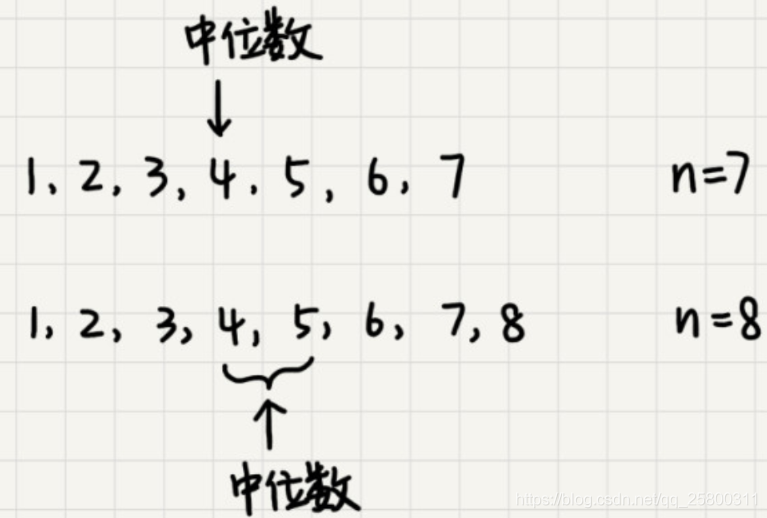 中位数
1, 2, 3, 4, 5, 6, 7 n=7
1, 2, 3, 4, 5, 6, 7, 8 n=8
中位数
https://blog.csdn.net/qq_25800311